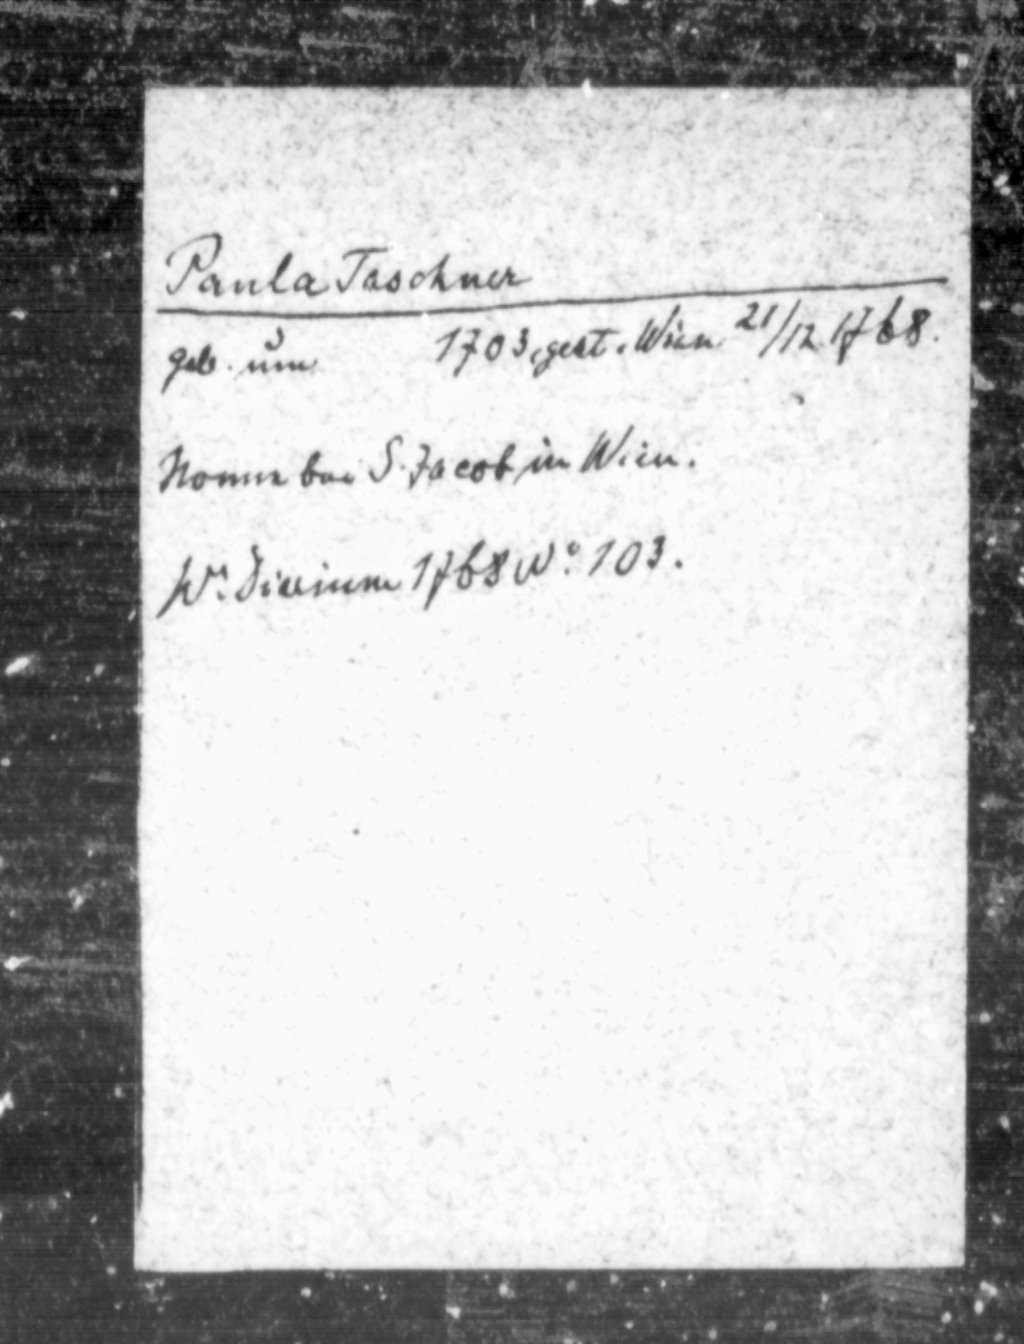 Paula Taschner
geb. um 1703, gest. Wien 21/12 1768.
Nonne bei S. Jacob in Wien.
Wr. Diarium 1768 No. 103.